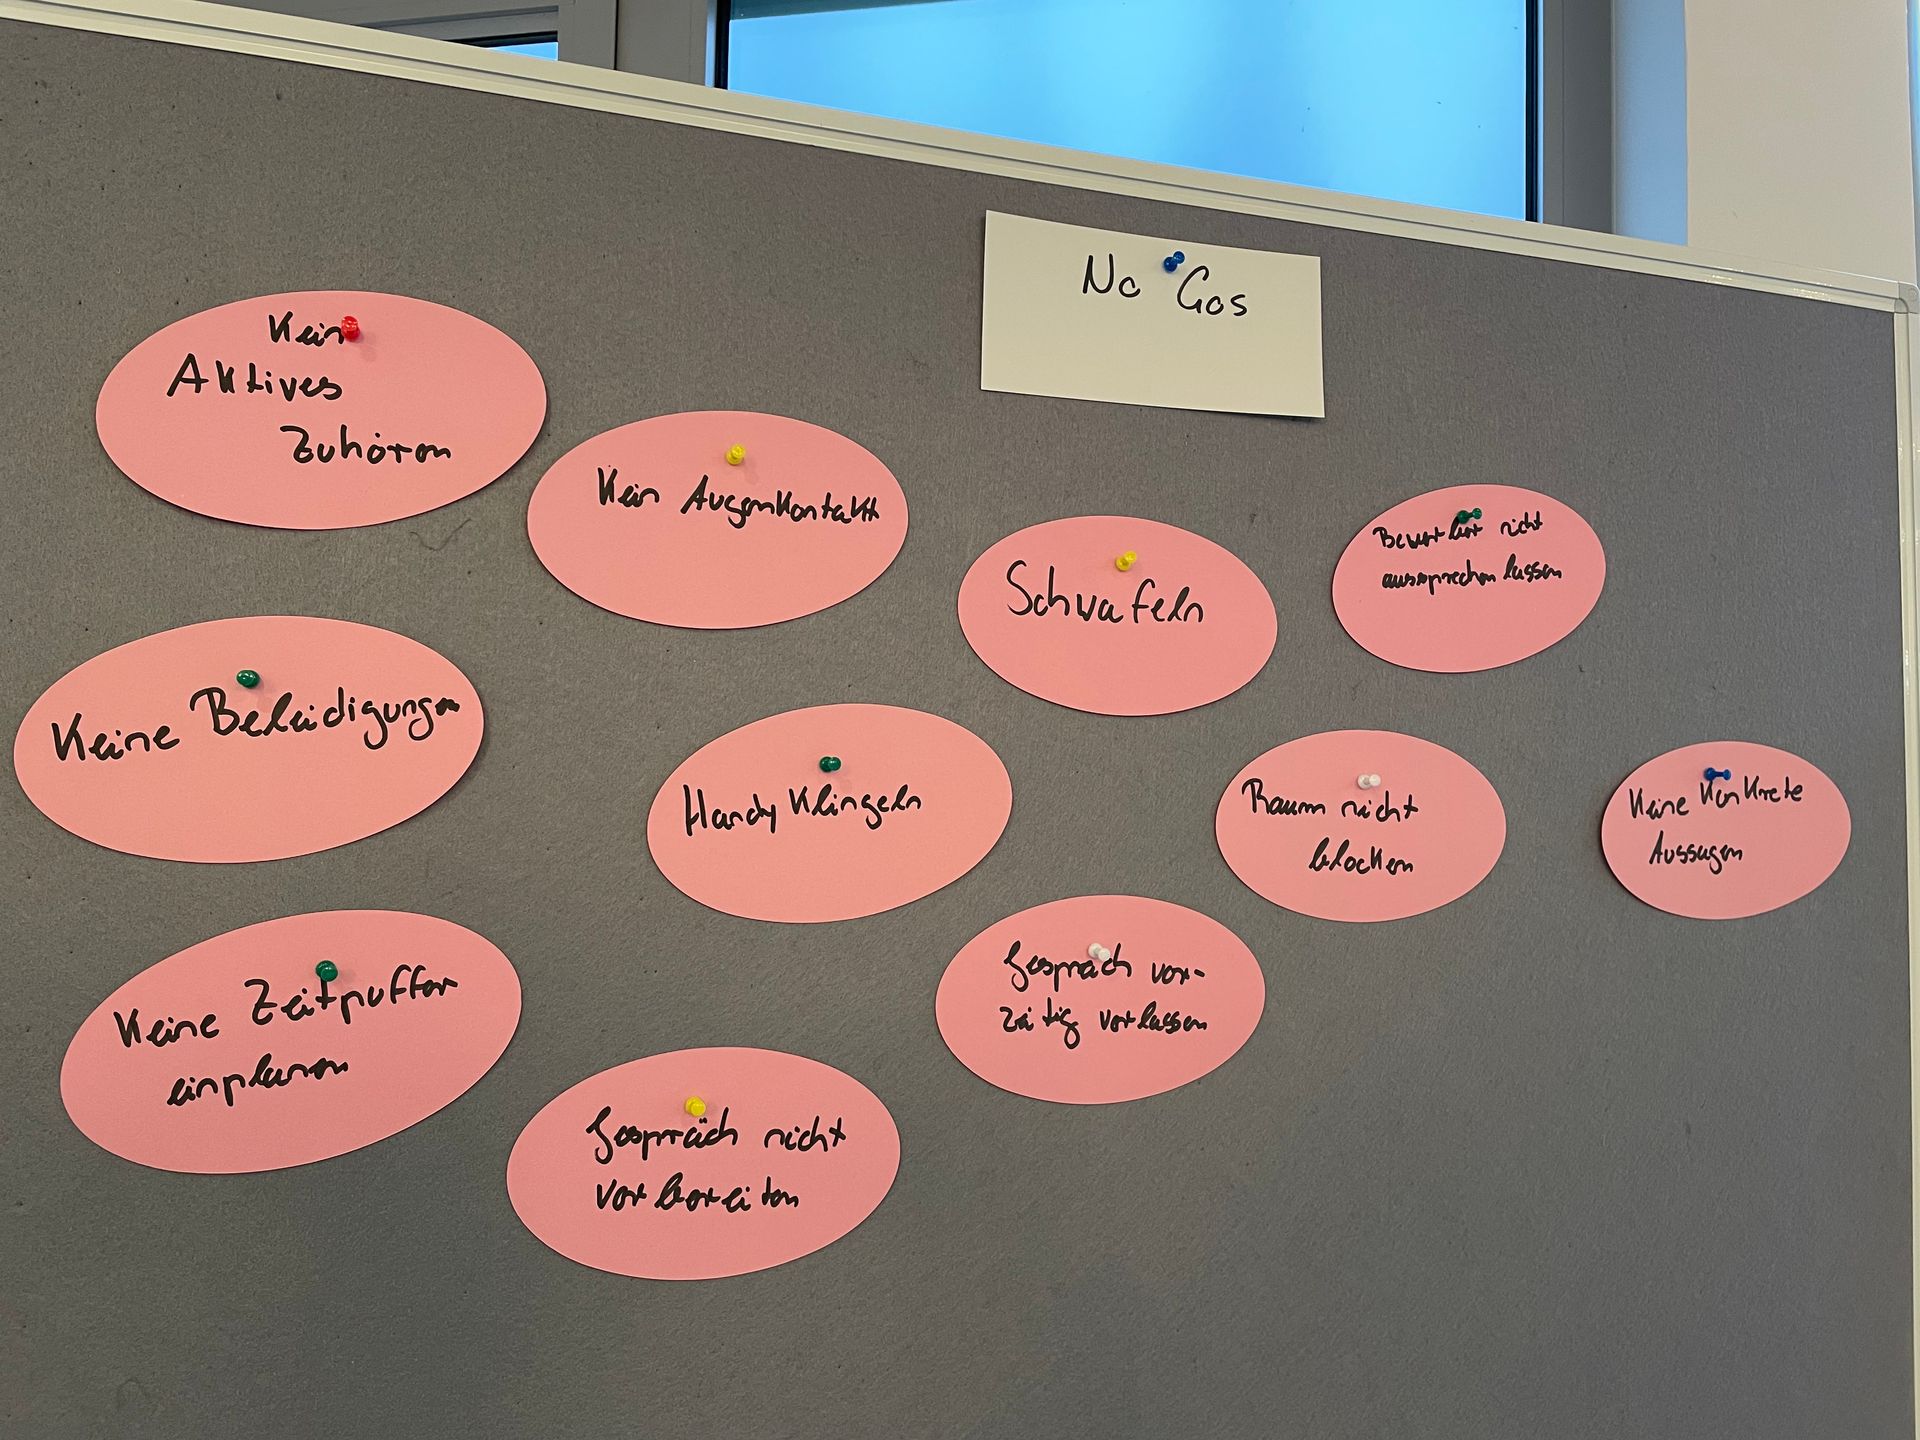 No Gos
Kein
Aktives
Zuhören
Kein Augenkontakt
Schwafeln
Bewerber nicht
aussprechen lassen
Keine Beleidigungen
Handy Klingeln
Raum nicht
blocken
Keine Konkrete
Aussagen
Keine Zeitpuffer
einplanen
Gespräch vor-
zeitig verlassen
Gespräch nicht
vorbereiten